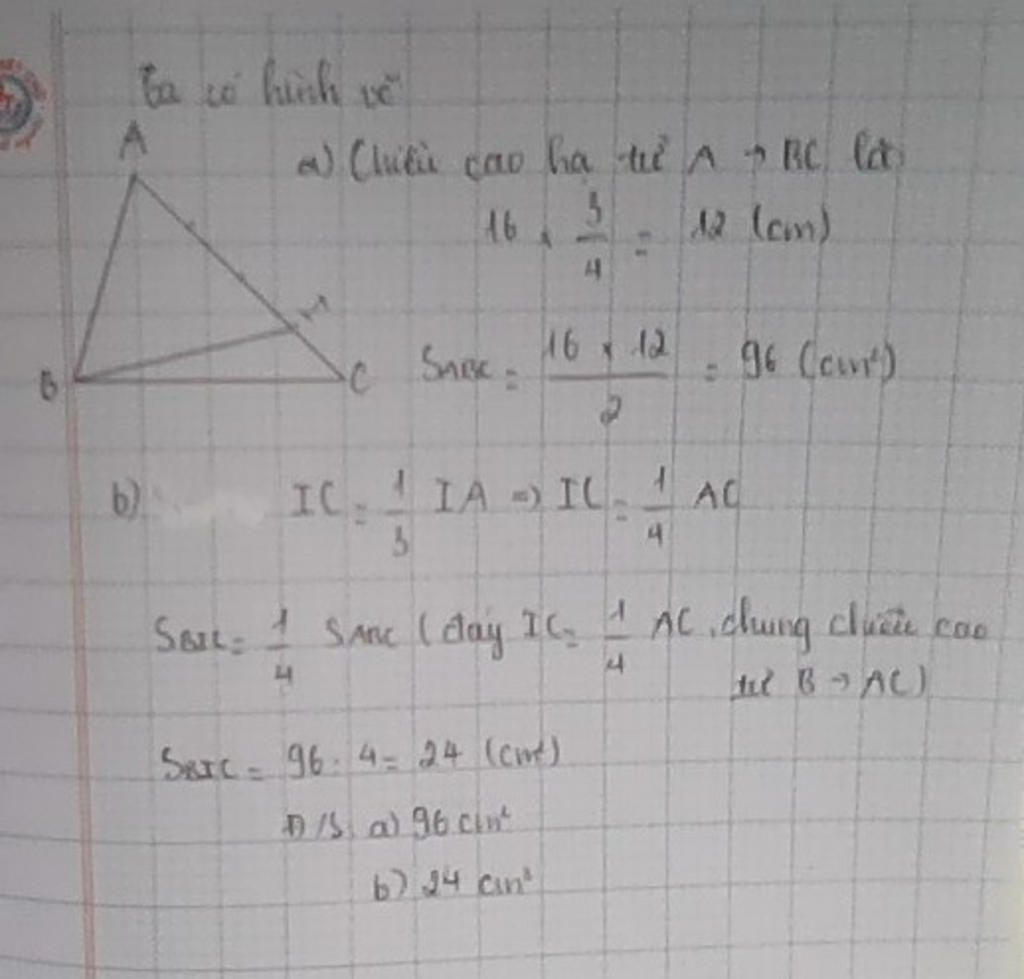 Ta có hình vẽ
A
a) Chiều cao hạ từ A → BC là:
16 . 3/4 = 12 (cm)
I
B
C
SABC = 16 x 12 / 2 = 96 (cm²)
b) IC = 1/3 IA => IC = 1/4 AC
SBIC = 1/4 SABC (đáy IC = 1/4 AC, chung chiều cao
từ B → AC)
SBIC = 96 : 4 = 24 (cm²)
Đ/S: a) 96 cm²
b) 24 cm²